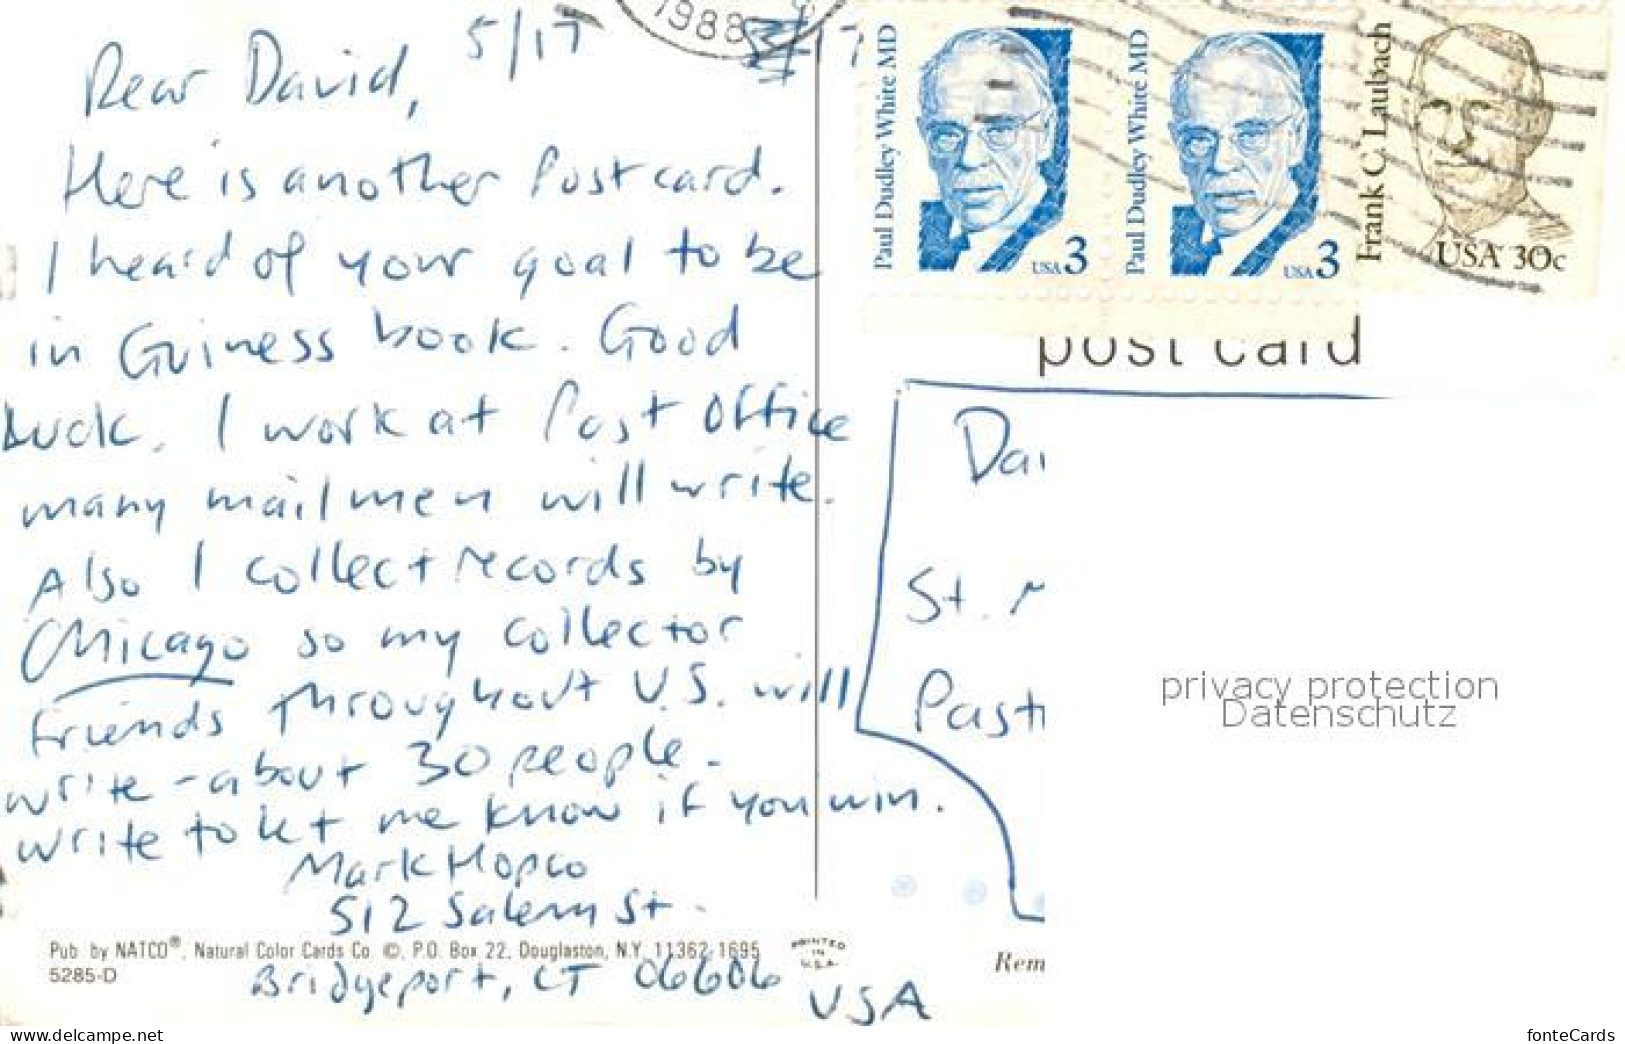 5/17
1988
17
Dear David,
Here is another Postcard.
I heard of your goal to be
in Guiness book. Good
Luck. I work at Post Office
many mailmen will write.
Also I collect records by
Chicago so my collector
friends throughout U.S. will
write - about 30 people.
write to let me know if you win.
Mark Hopco
512 Salem St.
Bridgeport, CT 06606
USA
Pub. by NATCO®, Natural Color Cards Co. ©, P.O. Box 22, Douglaston, N.Y. 11362-1695
5285-D
PRINTED
IN
U.S.A.
Paul Dudley White MD
USA 3
Paul Dudley White MD
USA 3
Frank C. Laubach
USA 30c
post card
Dav
St.
Past
Rem
privacy protection
Datenschutz
www.delcampe.net
fonteCards